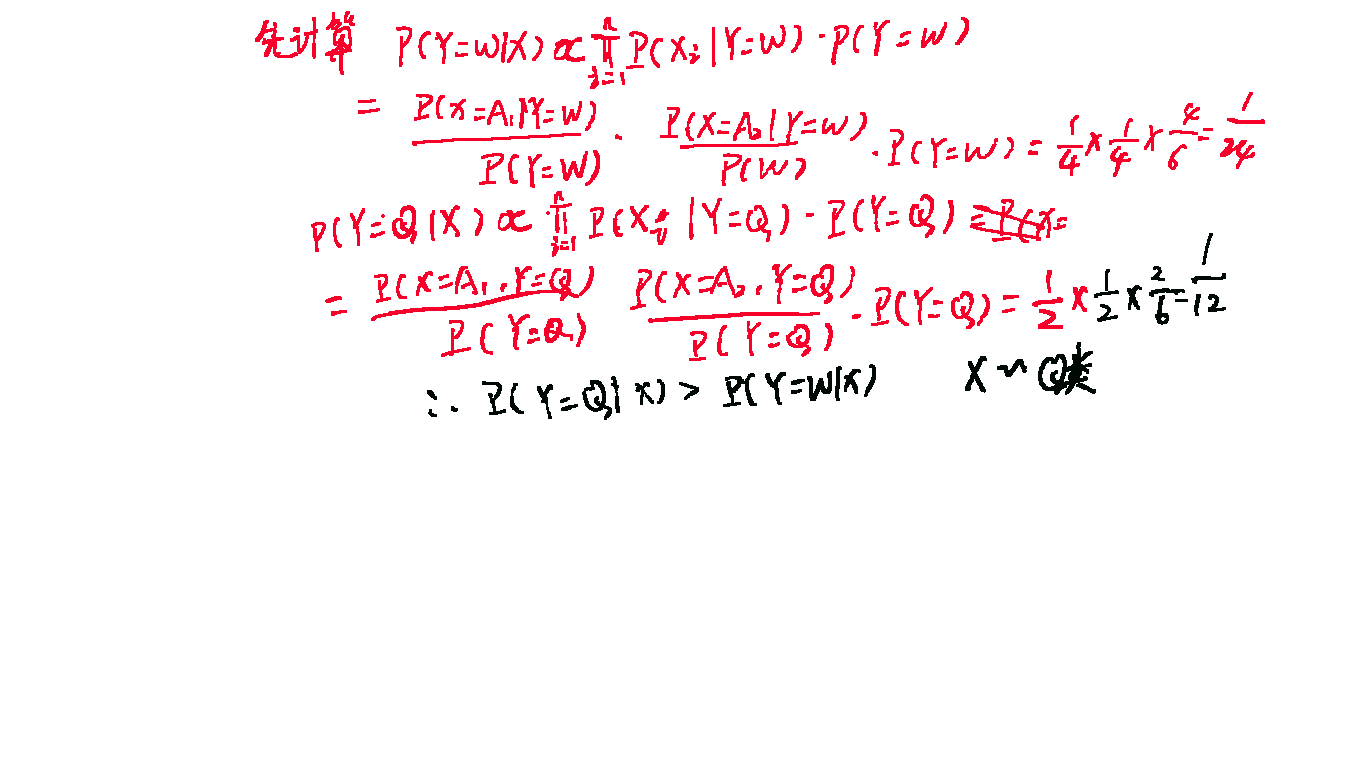 先计算 P(Y=W|X) ∝ ∏_{i=1}^{n} P(X_i|Y=W) · P(Y=W)
= \frac{P(x=A_1|Y=W)}{P(Y=W)} · \frac{P(X=A_2|Y=W)}{P(W)} · P(Y=W) = \frac{1}{4} × \frac{1}{4} × \frac{4}{6} = \frac{1}{24}
P(Y=Q|X) ∝ ∏_{i=1}^{n} P(X_i|Y=Q) · P(Y=Q) = P(x=
= \frac{P(X=A_1, Y=Q)}{P(Y=Q)} \frac{P(X=A_2, Y=Q)}{P(Y=Q)} · P(Y=Q) = \frac{1}{2} × \frac{1}{2} × \frac{2}{6} = \frac{1}{12}
∴ P(Y=Q|x) > P(Y=W|x) X ~ Q类